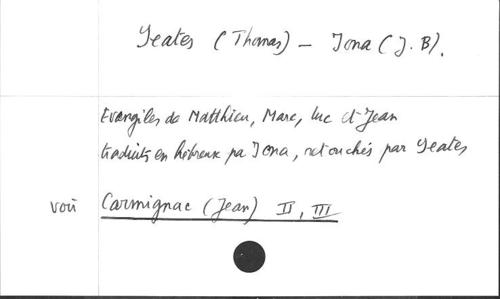 Yeates (Thomas) – Jona (J. B).
Evangiles de Matthieu, Marc, Luc et Jean
traduits en hébreux par Jona, retouchés par Yeates
voir Carmignac (Jean) II, III